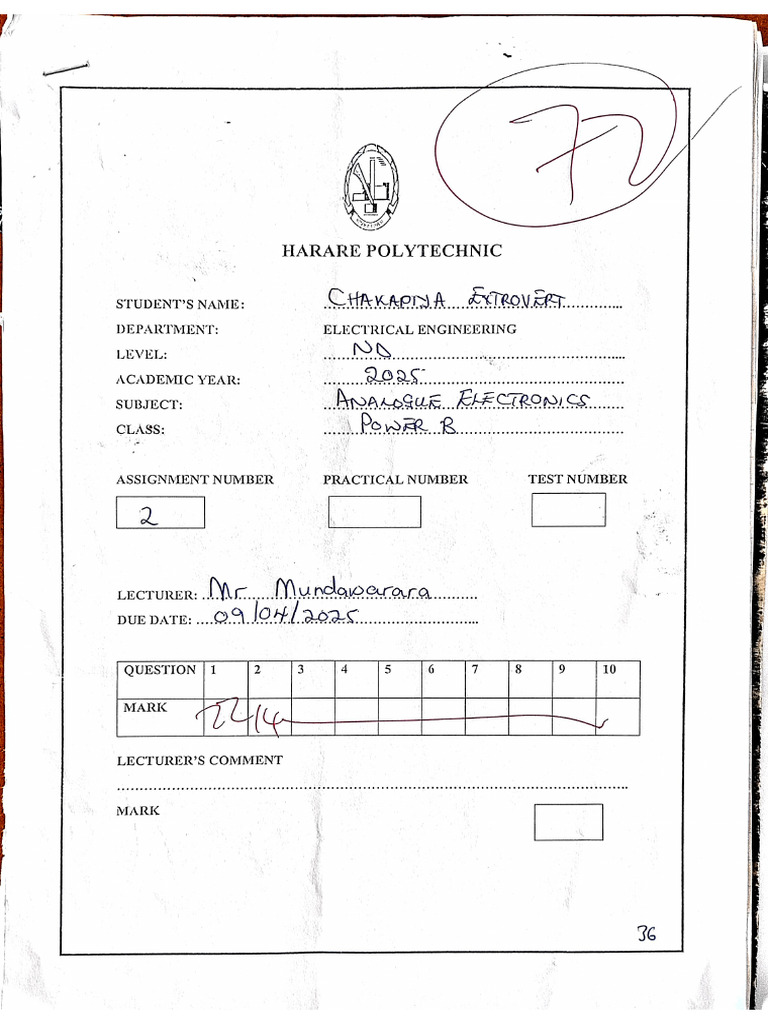 72
HARARE POLYTECHNIC
STUDENT'S NAME: CHAKAPINA EXTROVERT
DEPARTMENT: ELECTRICAL ENGINEERING
LEVEL: ND
ACADEMIC YEAR: 2025
SUBJECT: ANALOGUE ELECTRONICS
CLASS: POWER B
ASSIGNMENT NUMBER PRACTICAL NUMBER TEST NUMBER
2
LECTURER: Mr Mundawarara
DUE DATE: 09/04/2025
QUESTION 1 2 3 4 5 6 7 8 9 10
MARK 22 14
LECTURER'S COMMENT
MARK
36